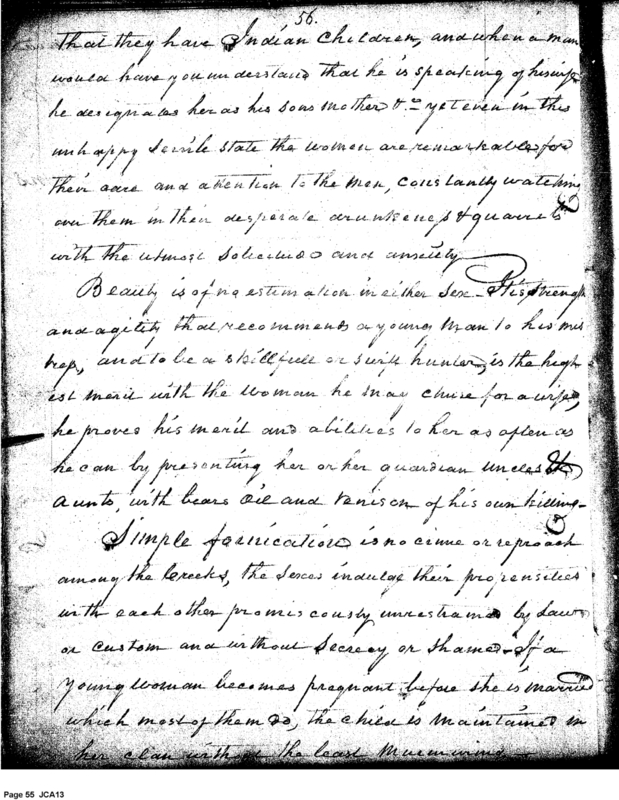 56.
that they have Indian Children, and when a man
would have you understand that he is speaking of his wife
he designates her as his sons mother &c yet even in this
unhappy servile state the women are remarkable for
their care and attention to the men, constantly watching
over them in their desperate drunkeness & quarrels
with the utmost solicitude and anxiety
Beauty is of no estimation in either sex. It is strength
and agility that recommends a young man to his mis
tress, and to be a skillfull or swift hunter, is the high
est merit with the woman he may chuse for a wife,
he proves his merit and abilities to her as often as
he can by presenting her or her guardian uncles &
aunts, with bears Oil and venison of his own killing.
Simple fornication is no crime or reproach
among the Creeks, the sexes indulge their propensities
with each other promiscously unrestrained by Law
or custom and without Secrecy or Shame. If a
young woman becomes pregnant before she is married
which most of them do, the child is maintained in
her clan without the least Murmuring
Page 55 JCA13